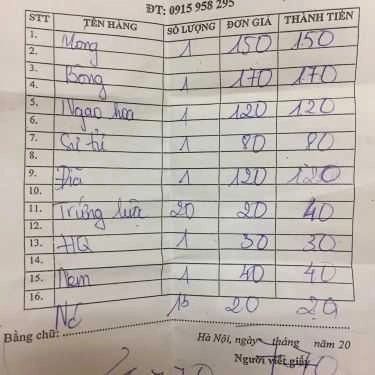 ĐT: 0915 958 295
STT TÊN HÀNG SỐ LƯỢNG ĐƠN GIÁ THÀNH TIỀN
1. Mong 1 150 150
2.
3. Bồng 1 170 170
4.
5. Ngao hoa 1 120 120
6.
7. 1 80 80
8.
9. Đĩa 1 120 120
10.
11. Trứng lựa 20 20 40
12.
13. HQ 1 30 30
14.
15. Nem 1 40 40
16.
Nc 15 20 20
Bằng chữ:
Hà Nội, ngày tháng năm 20
Người viết giấy